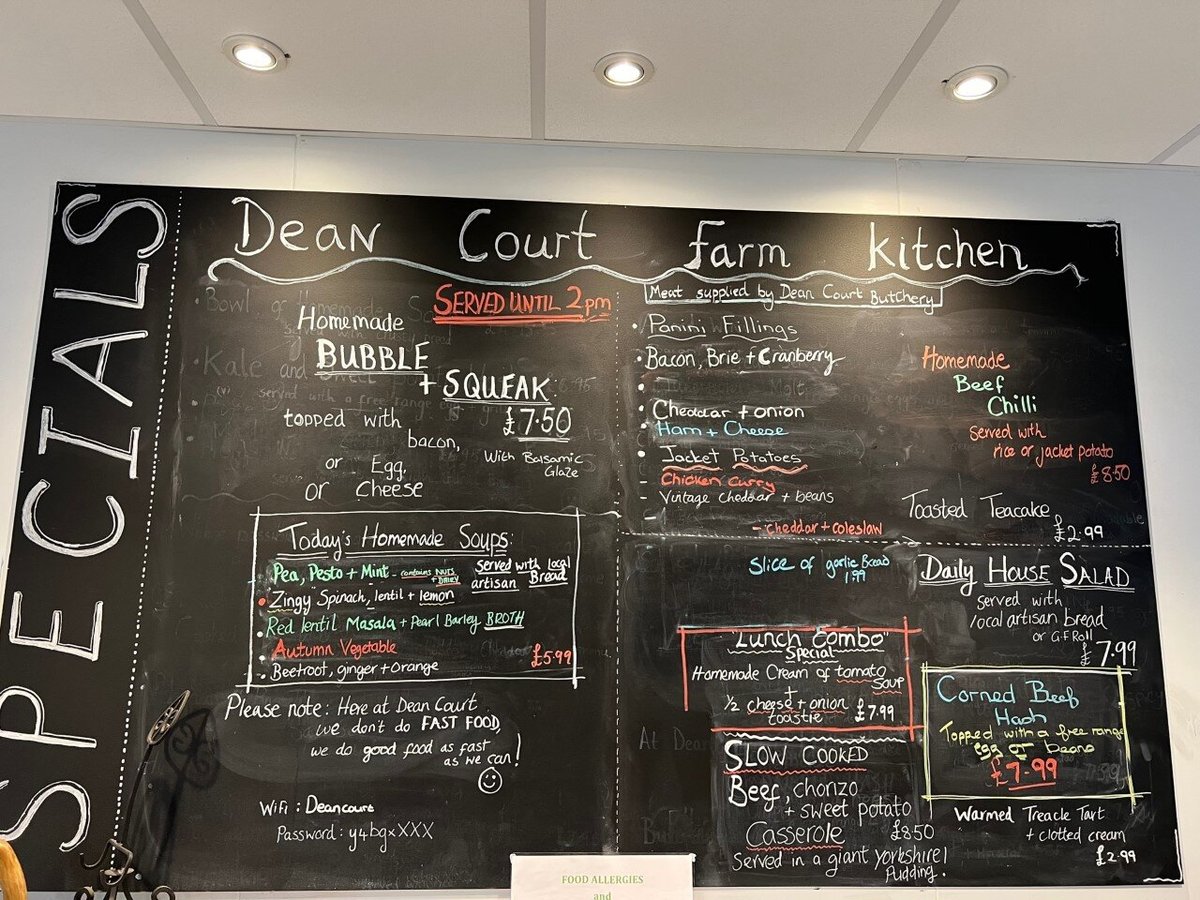 SPECIALS
Dean Court Farm Kitchen
SERVED UNTIL 2pm
Homemade
BUBBLE
+ SQUEAK
£7.50
topped with
bacon,
With Balsamic
Glaze
or Egg,
or Cheese
Today's Homemade Soups:
Pea, Pesto + Mint - contains NUTS
+ DAIRY
Served with local
artisan Bread
• Zingy Spinach, lentil + lemon
• Red lentil Masala + Pearl Barley BROTH
• Autumn Vegetable
• Beetroot, ginger + orange
£5.99
Please note: Here at Dean Court
we don't do FAST FOOD,
we do good food as fast
as we can!
Wifi: Deancourt
Password: y4bgxXXX
Meat supplied by Dean Court Butchery
• Panini Fillings
• Bacon, Brie + Cranberry
• Cheddar + onion
• Ham + Cheese
• Jacket Potatoes
- Chicken Curry
- Vintage cheddar + beans
- cheddar + coleslaw
Homemade
Beef
Chilli
Served with
rice or jacket potato
£8.50
Toasted Teacake
£2.99
Slice of garlic Bread
1.99
"Lunch Combo"
Special
Homemade Cream of tomato
Soup
+
1/2 cheese + onion
toastie £7.99
SLOW COOKED
Beef, chorizo
+ sweet potato
Casserole £8.50
Served in a giant Yorkshire
Pudding.
Daily House Salad
served with
local artisan bread
or G.F Roll
£7.99
Corned Beef
Hash
Topped with a free range
egg or beans
£7.99
Warmed Treacle Tart
+ clotted cream
£2.99
FOOD ALLERGIES
and